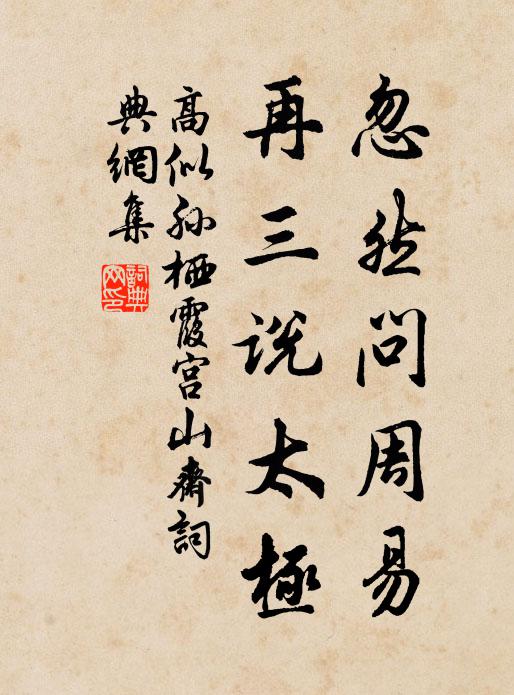 忽然问周易
再三说太極
高似孙栖霞宫山齋詞
典網集
詞典
网印